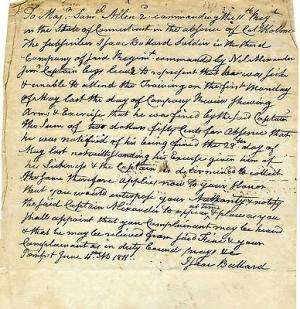 To Maj. Saml Allen 2d commanding the 11th Regt
in the State of Connecticut in the absence of Col
The Subscriber Isaac Bullard Soldier in the third
Company of said Regim commanded by Nel Alexander
Junr Captain begs leave to represent that he was sick
& unable to attend the Training on the first Monday
of May last the day of Company Review Shewing
Arms & Exercise that he was fined by the said Captain
the Sum of two dollars fifty Cents for Absence that
he was notified of his being fined the 28th day of
May last notwithstanding his Excuse given him of
his Sickness & the Captain is determined to collect
the same therefore applies now to your Honor
that you would interpose your Authority & notify
the said Captain Alexander to appear at time & place as you
shall appoint that your Complainant may be heard
& that he may be relieved from said Fine & your
Complainant as in duty bound prays &c
Pomft June 4th AD 1811
Isaac Bullard